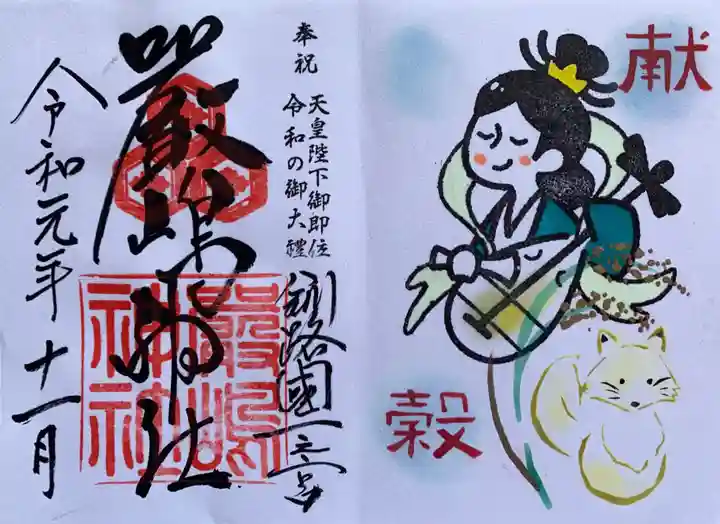 献
穀
奉祝
天皇陛下御即位
令和の御大禮
釧路國一之宮
厳島神社
嚴嶋
神社
令和元年十一月